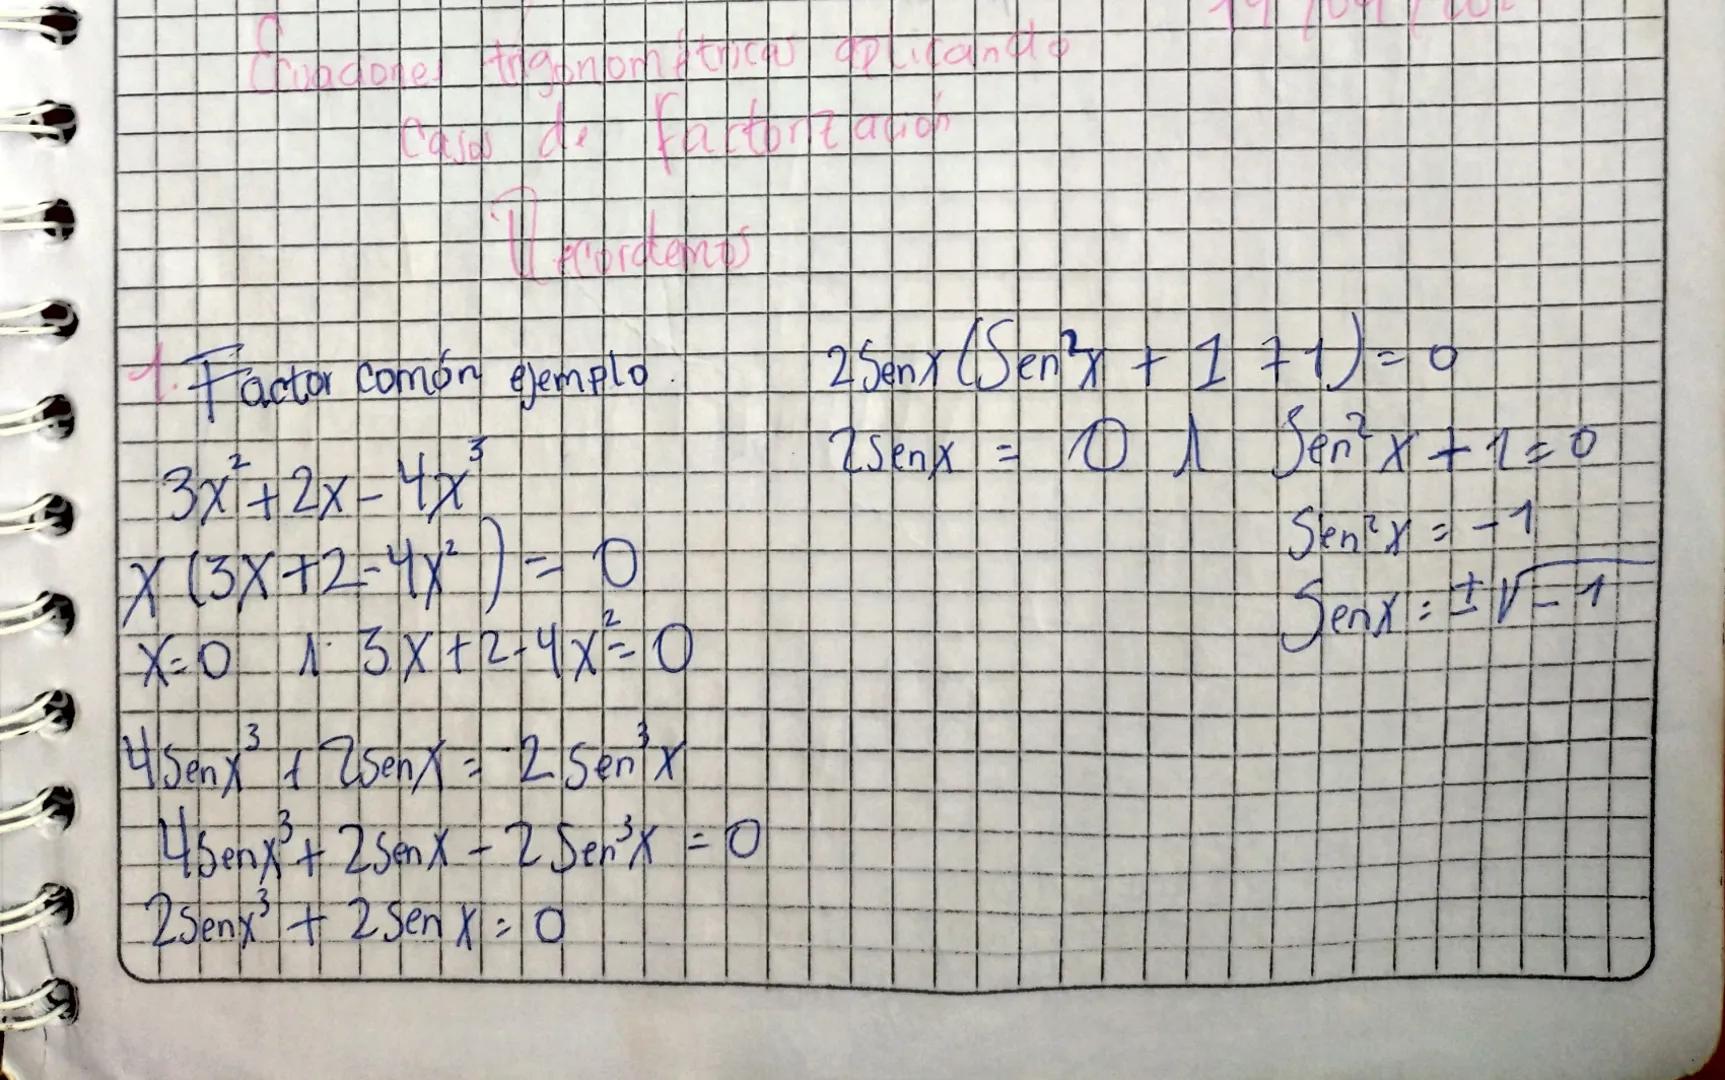 Ecuaciones trigonométricas aplicando
Casos de Factorización
Recordemos
1. Factor común ejemplo.
3x² + 2x - 4x³
x (3x + 2 - 4x²) = 0
x = 0 ∧ 3x + 2 - 4x² = 0
4Senx³ + 2Senx = 2Sen³x
4Senx³ + 2Senx - 2Sen³x = 0
2Senx³ + 2Senx = 0
2Senx (Sen²x + 1) = 0
2Senx = 0 ∧ Sen²x + 1 = 0
Sen²x = -1
Senx = ±√-1